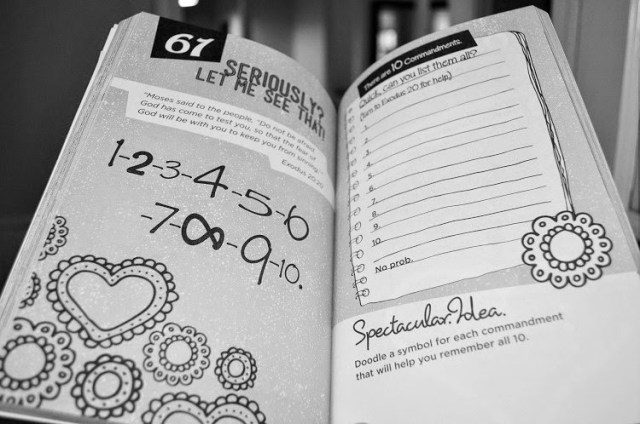 67
SERIOUSLY?
LET ME SEE THAT!
"Moses said to the people, "Do not be afraid.
God has come to test you, so that the fear of
God will be with you to keep you from sinning."
Exodus 20:20
1-2-3-4-5-6
-7-∞-9-10.
There are 10 Commandments.
Quick, can you list them all?
(Turn to Exodus 20 for help)
1.
2.
3.
4.
5.
6.
7.
8.
9.
10.
No prob.
Spectacular Idea.
Doodle a symbol for each commandment
that will help you remember all 10.